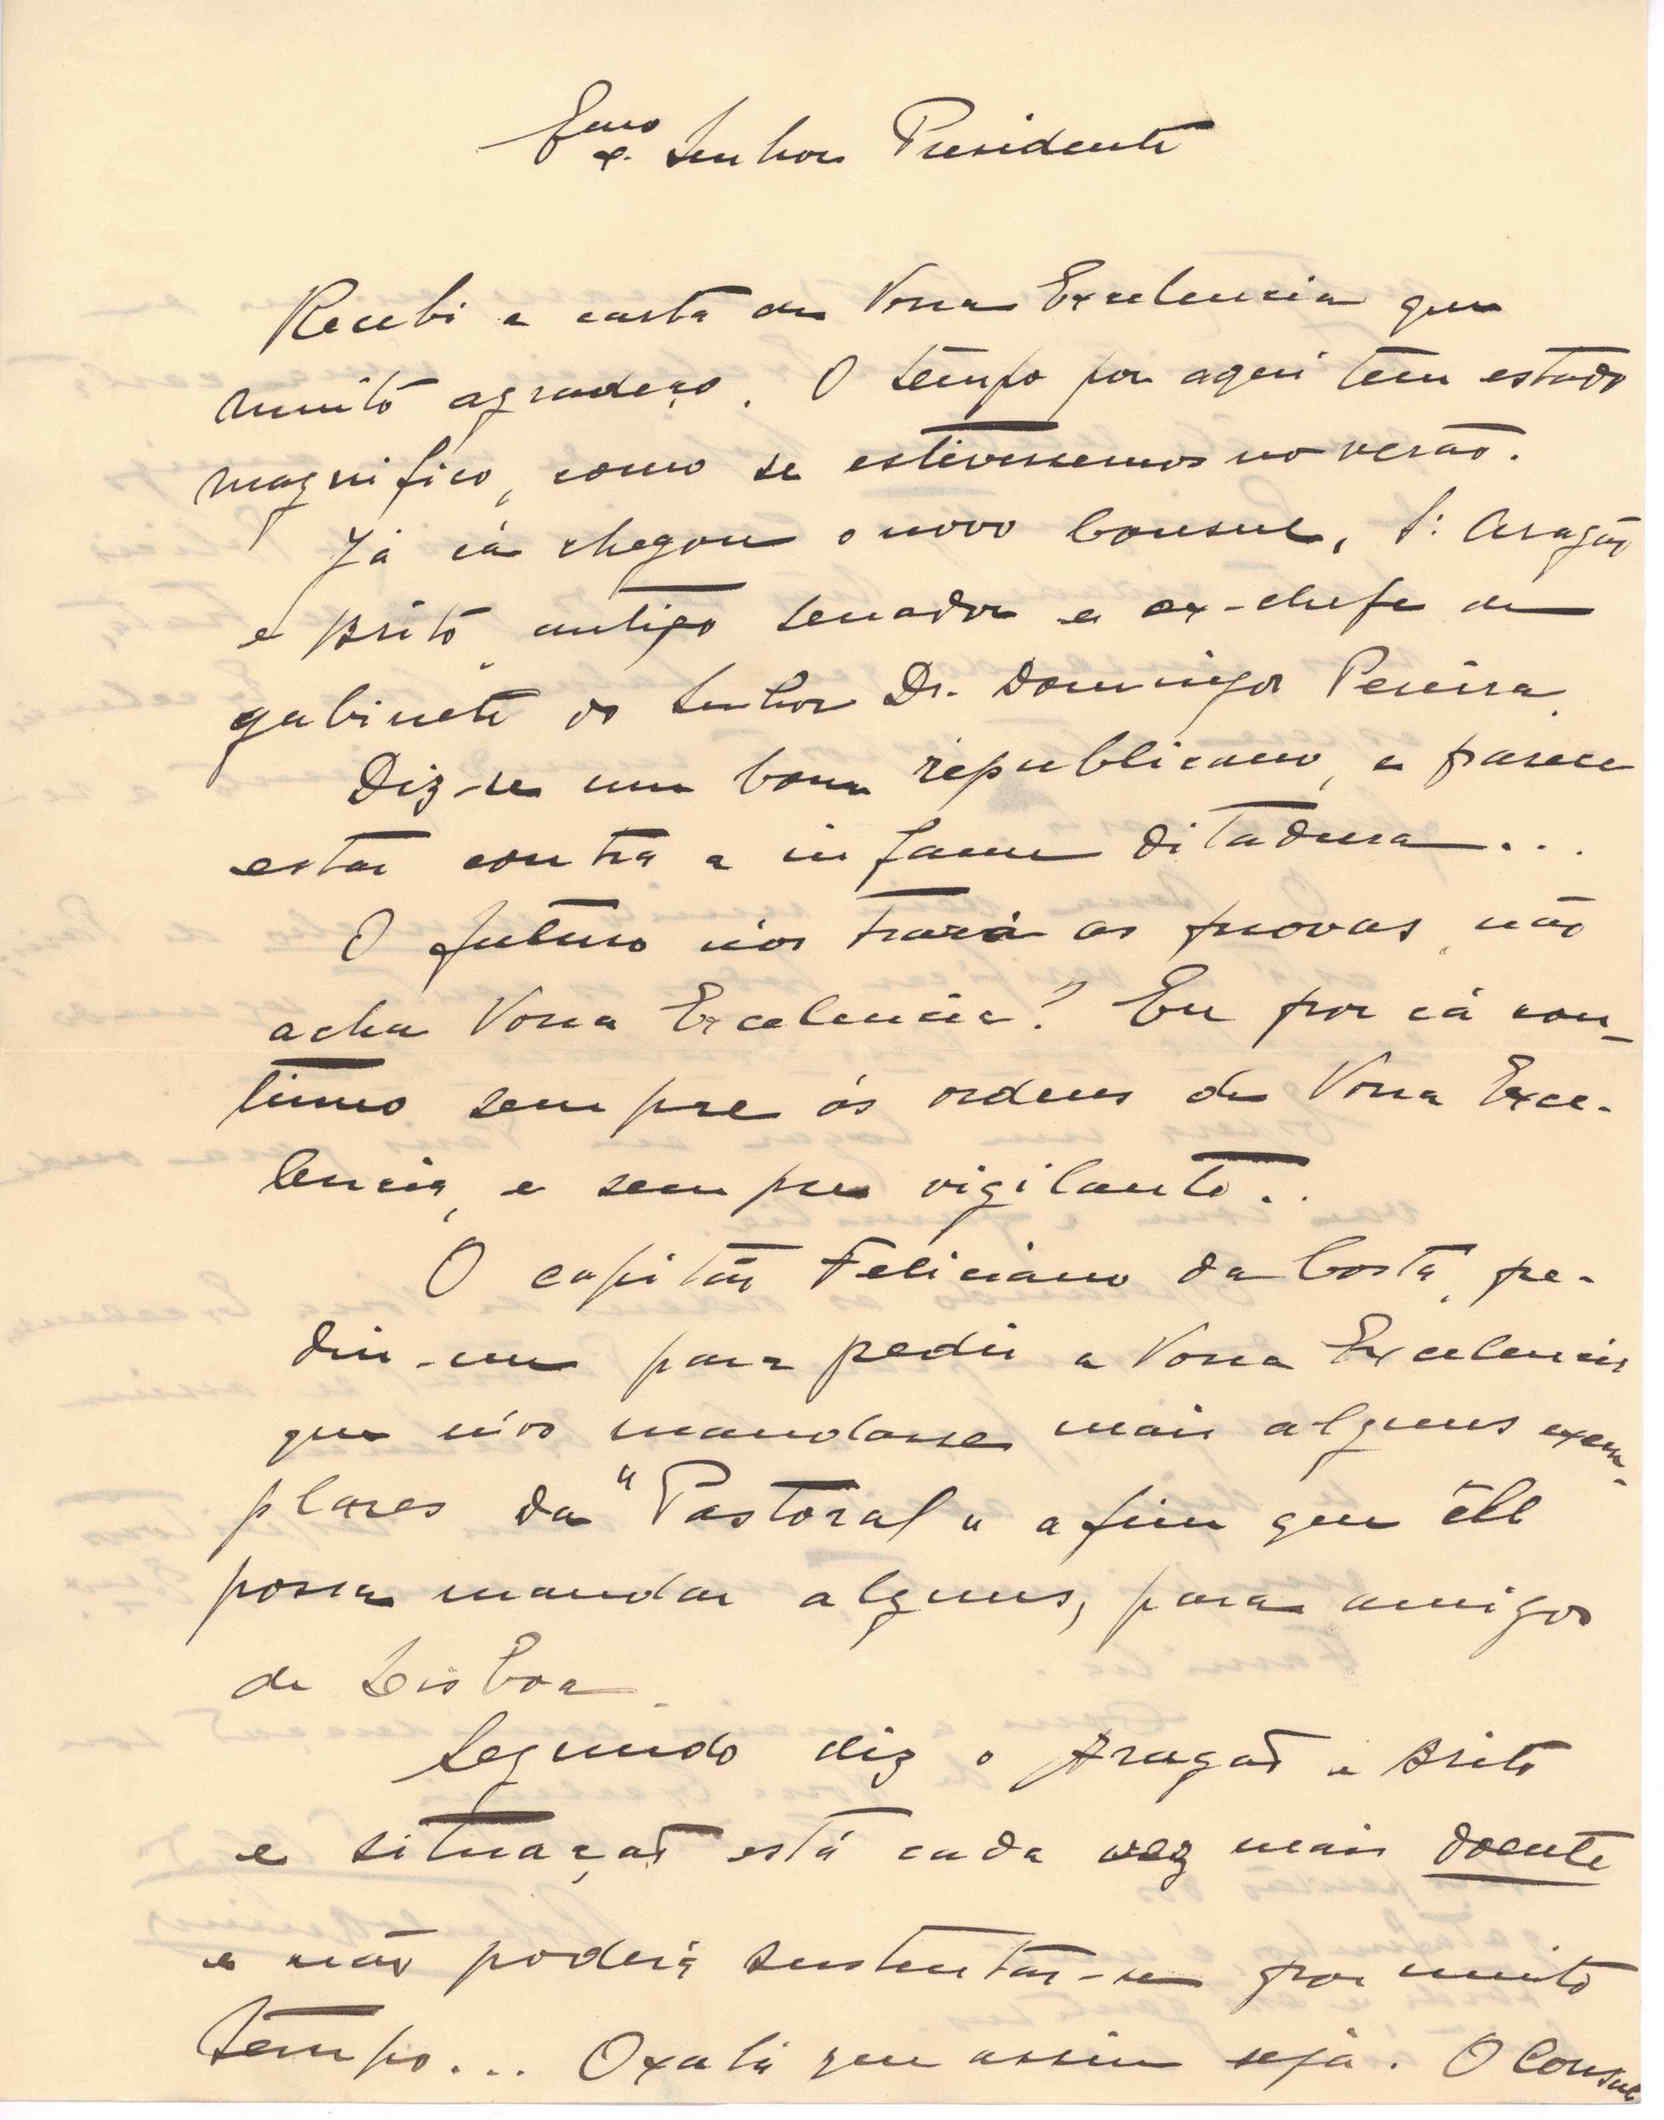 Exmo Senhor Presidente
Recebi a carta de Vossa Excelencia que
muito agradeço. O tempo por aqui tem estado
magnifico, como se estivessemos no verão.
Já cá chegou o novo Consul, Sr. Aragão
e Brito, antigo senador e ex-chefe de
gabinete do Senhor Dr. Domingos Pereira.
Diz-se um bom republicano, e parece
estar contra a infame ditadura...
O futuro nos trará as provas, não
acha Vossa Excelencia? Eu por cá con-
tinuo sempre ás ordens de Vossa Exce-
lencia, e sempre vigilante..
O capitão Feliciano da Costa, pe-
diu-me para pedir a Vossa Excelencia
que nos mandasse mais alguns exem-
plares da "Pastoral" a fim que êle
possa mandar alguns, para amigos
de Lisboa.
Segundo diz o Aragão e Brito
a situação está cada vez mais doente
e não poderá sustentar-se por muito
tempo... Oxalá que assim seja. O Consul